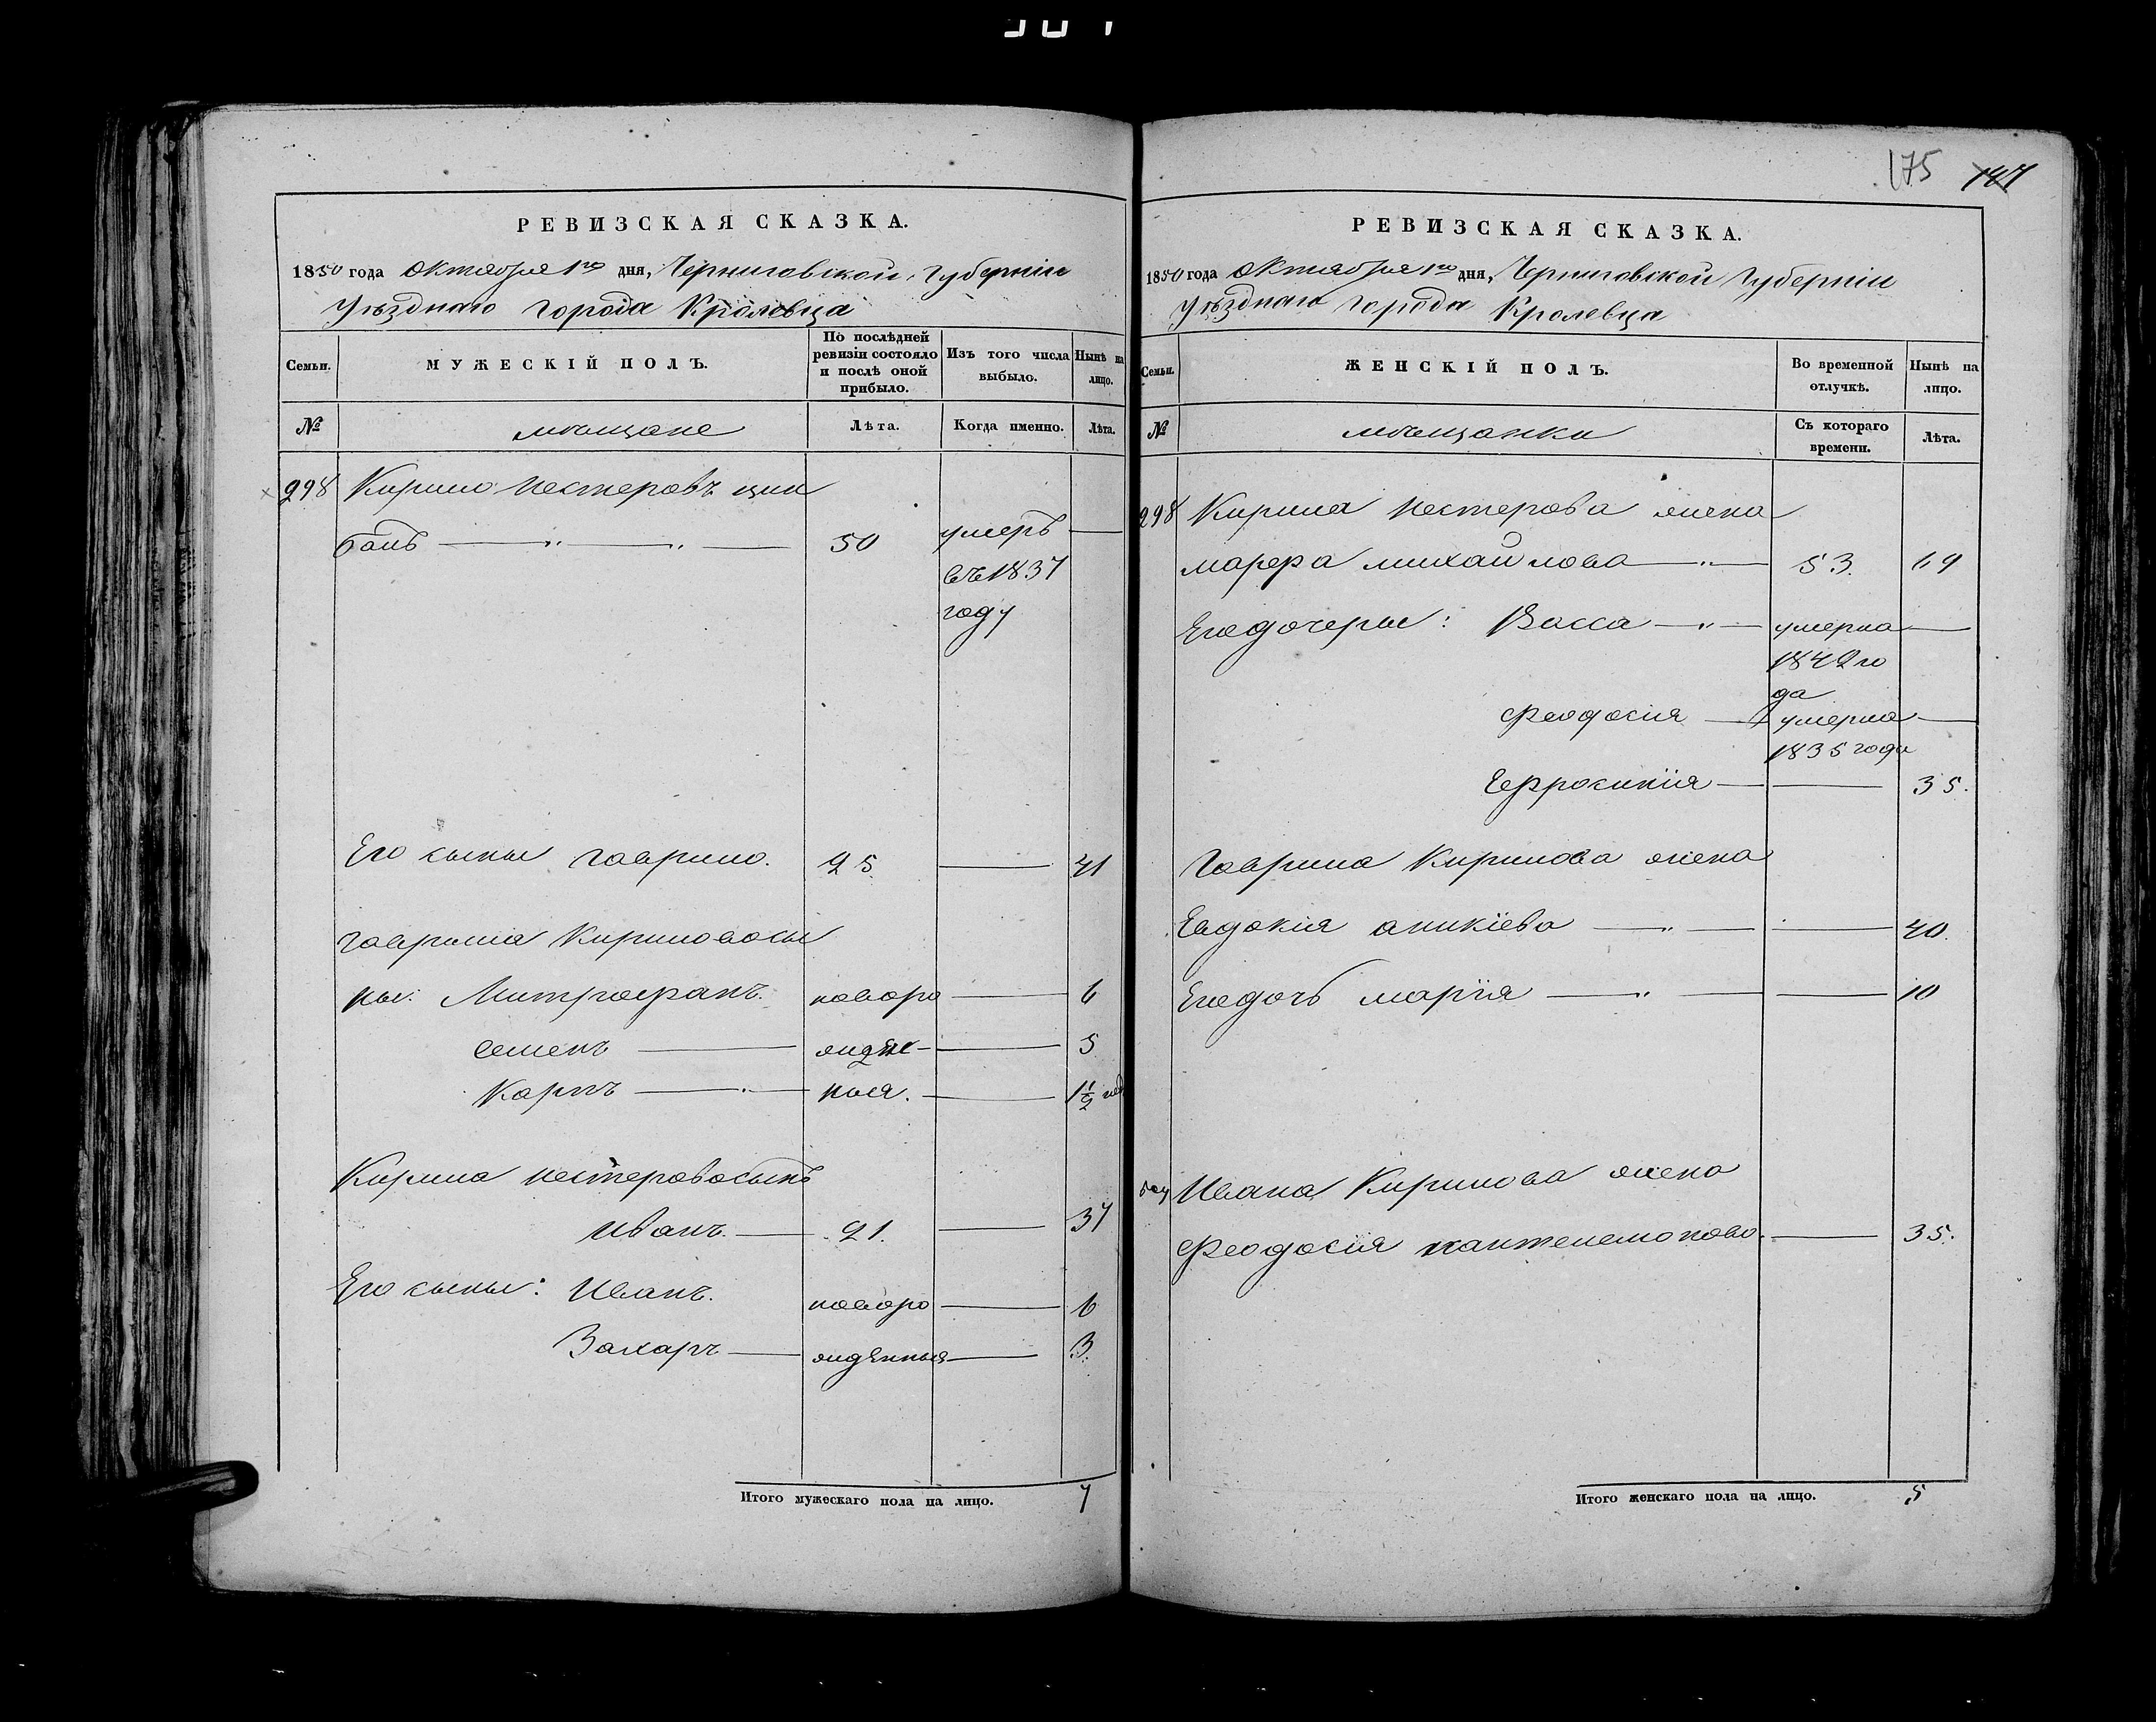 175 147
РЕВИЗСКАЯ СКАЗКА.
1850 года Октября 1го дня, Черниговской Губерніи
Уѣзднаго города Кролевца
Семьи.
МУЖЕСКІЙ ПОЛЪ.
По послѣдней ревизіи состояло и послѣ оной прибыло.
Изъ того числа выбыло.
Нынѣ на лицо.
№
мѣщане
Лѣта.
Когда именно.
Лѣта.
298 Кирило Нестеровъ цим
балъ 50 умеръ
въ 1837
году
Его сыны Гаврило. 25 41
Гаврила Кирилова сы
ны: Митрофанъ. новоро 6
Семенъ жден 5
Карпъ ныя. 1 1/2 год
Кирила Нестерова сынъ
Иванъ. 21. 37
Его сыны: Иванъ. новоро 6
Захаръ жденныя 3.
Итого мужескаго пола на лицо. 7
РЕВИЗСКАЯ СКАЗКА.
1850 года Октября 1го дня, Черниговской Губерніи
Уѣзднаго города Кролевца
Семьи.
ЖЕНСКІЙ ПОЛЪ.
Во временной отлучкѣ.
Нынѣ на лицо.
№
мѣщанки
Съ котораго времени.
Лѣта.
298 Кирила Нестерова жена
Марфа Михайлова 53. 69
Его дочеры: Васса умерла
1842 го
да
Феодосия умерла
1835 года
Ефросинія 35.
Гаврила Кирилова жена
Евдокія Аникіева 40.
Его дочь Марія 10
Ивана Кирилова жена
Феодосія Пантелемонова. 35.
Итого женскаго пола на лицо. 5